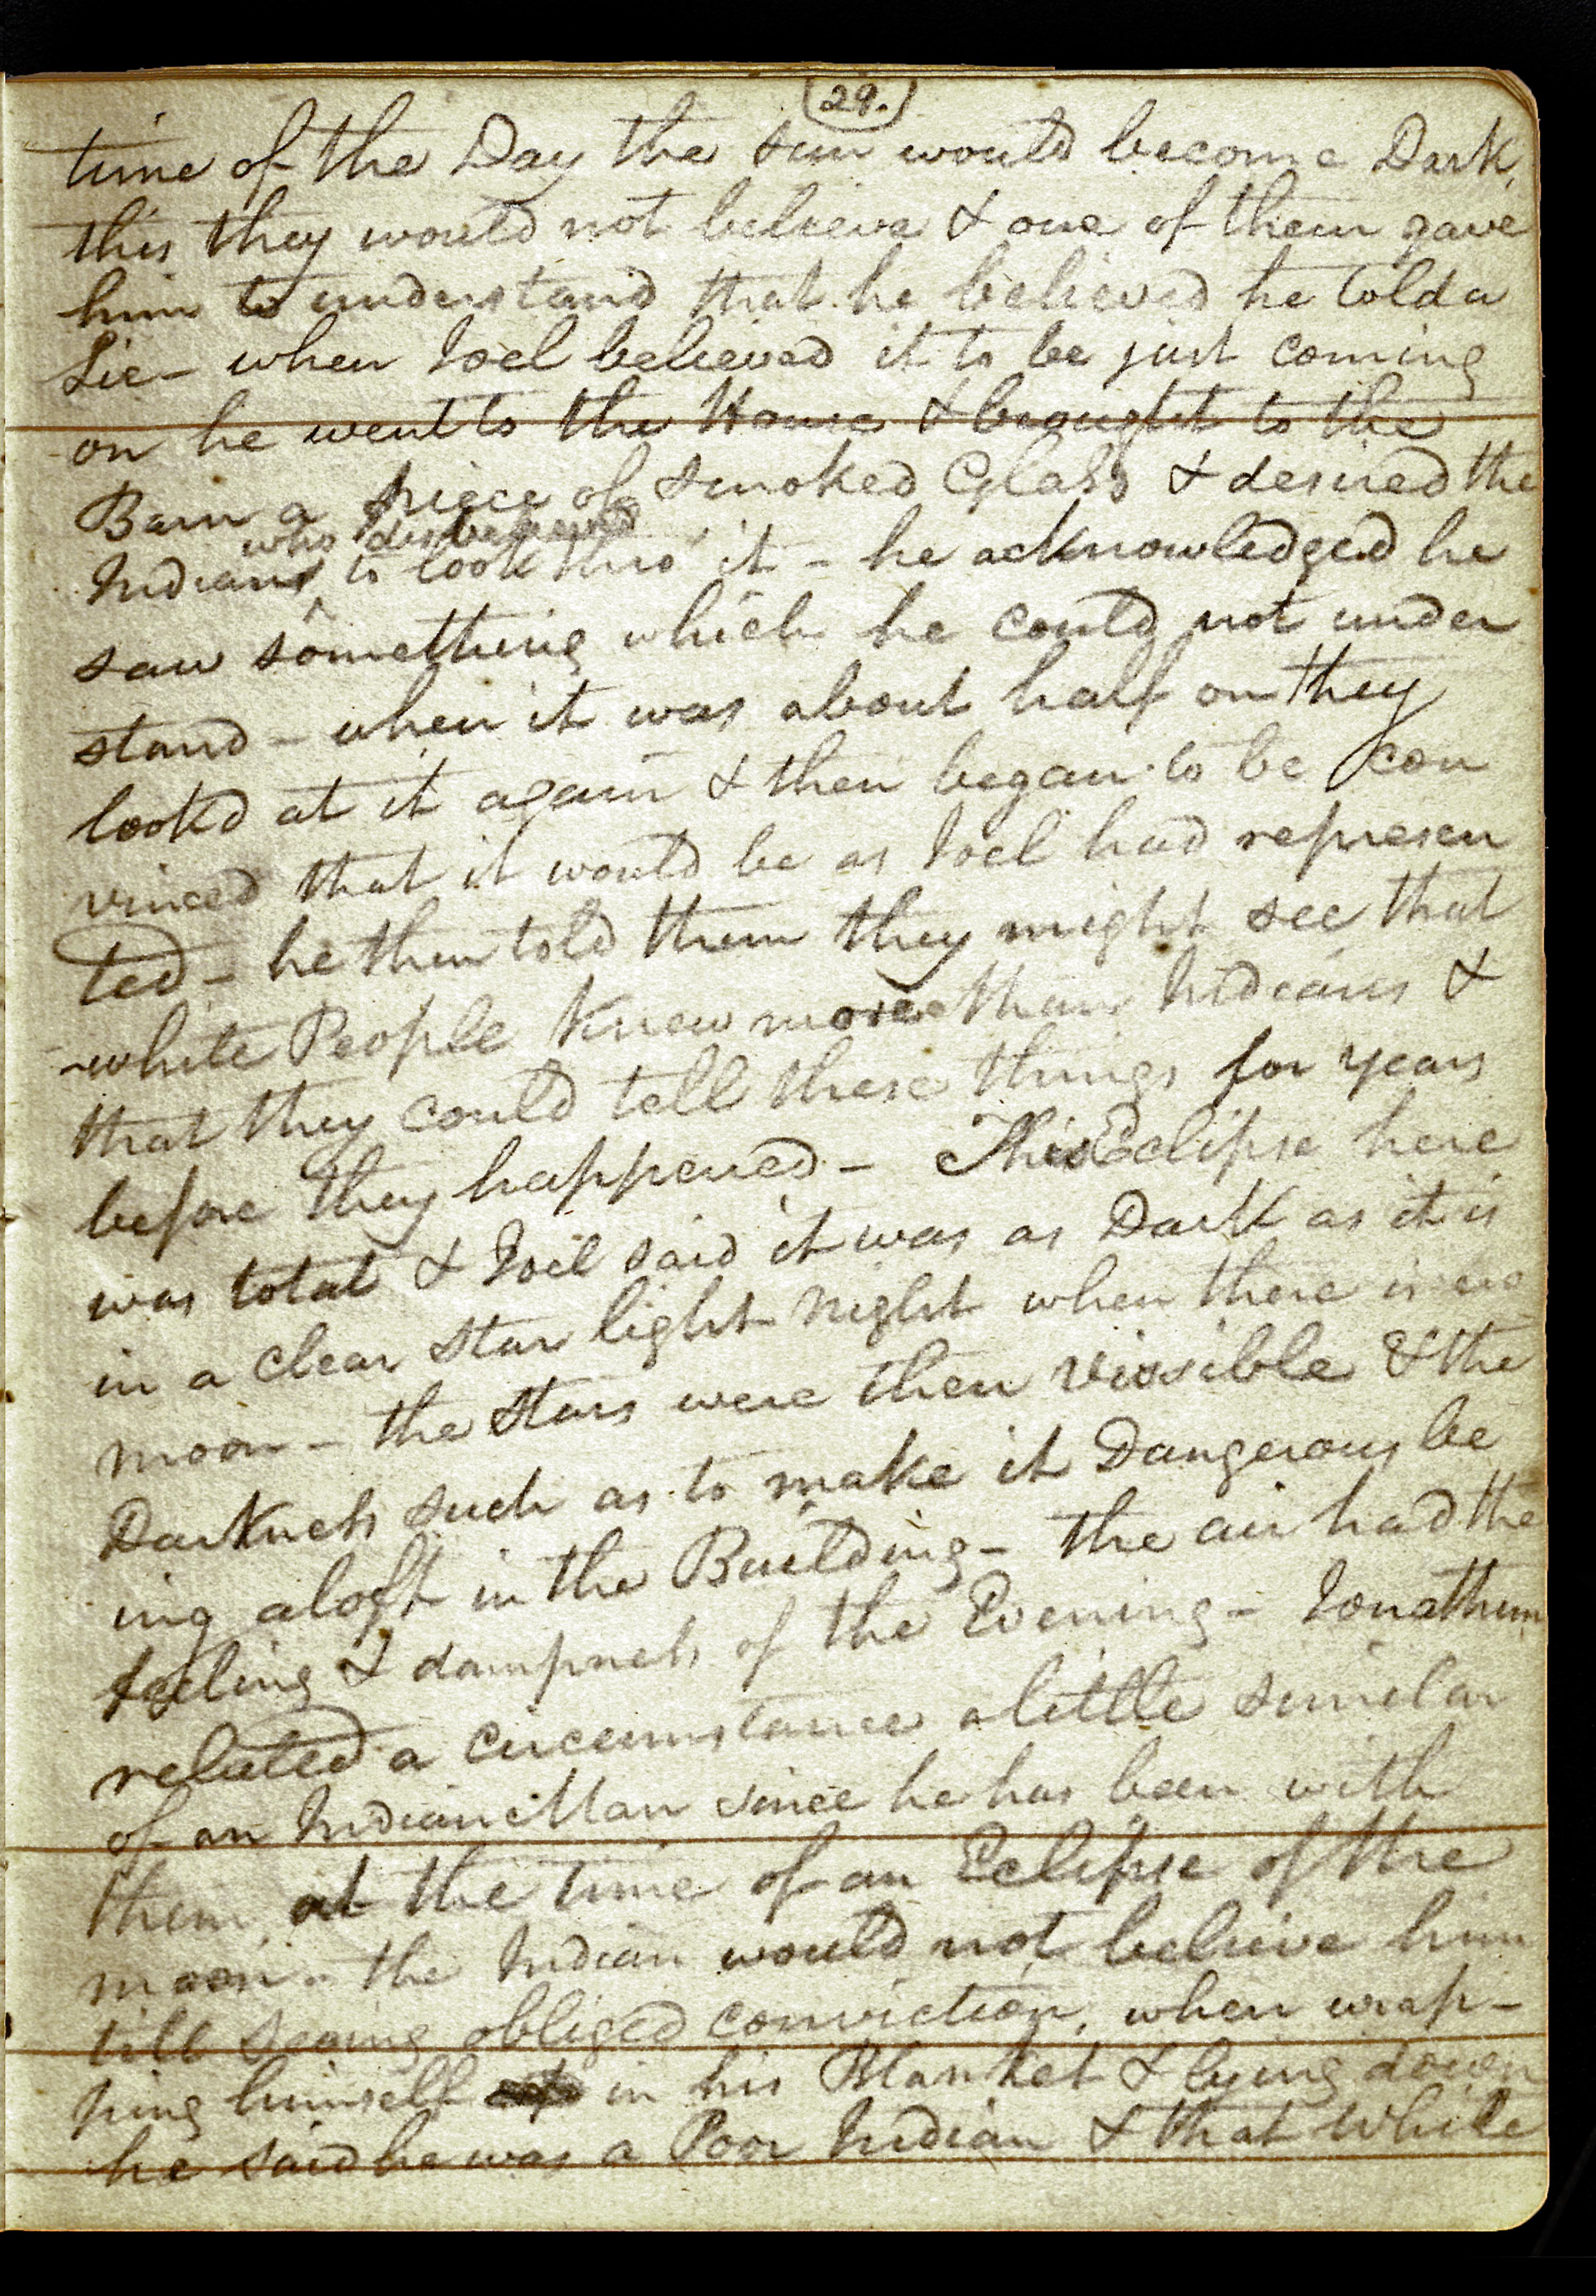 29.
time of the Day the sun would become Dark,
this they would not believe & one of them gave
him to understand that he believed he told a
Lie - when Joel believed it to be just coming
on he went to the House & brought to the
Barn a piece of smoked Glass & desired the
who disbelieved
Indian to look thro' it - he acknowledged he
saw something which he could not under
stand - when it was about half on they
lookd at it again & then began to be con
vinced that it would be as Joel had represen
ted - he then told them they might see that
white People Knew more than Indians &
that they could tell these things for years
before they happened - This Eclipse here
was total & Joel said it was as Dark as it is
in a clear Star light Night when there is no
moon - the Stars were then vissible & the
Darkness such as to make it Dangerous be
ing aloft in the Building - the air had the
feeling & dampness of the Evening - Jonathan
related a circumstance a little similar
of an Indian Man since he has been with
them, at the time of an Eclipse of the
moon - the Indian would not believe him
till seeing obliged conviction, when wrap-
ping himself in his Blanket & lying down
he said he was a Poor Indian & that White